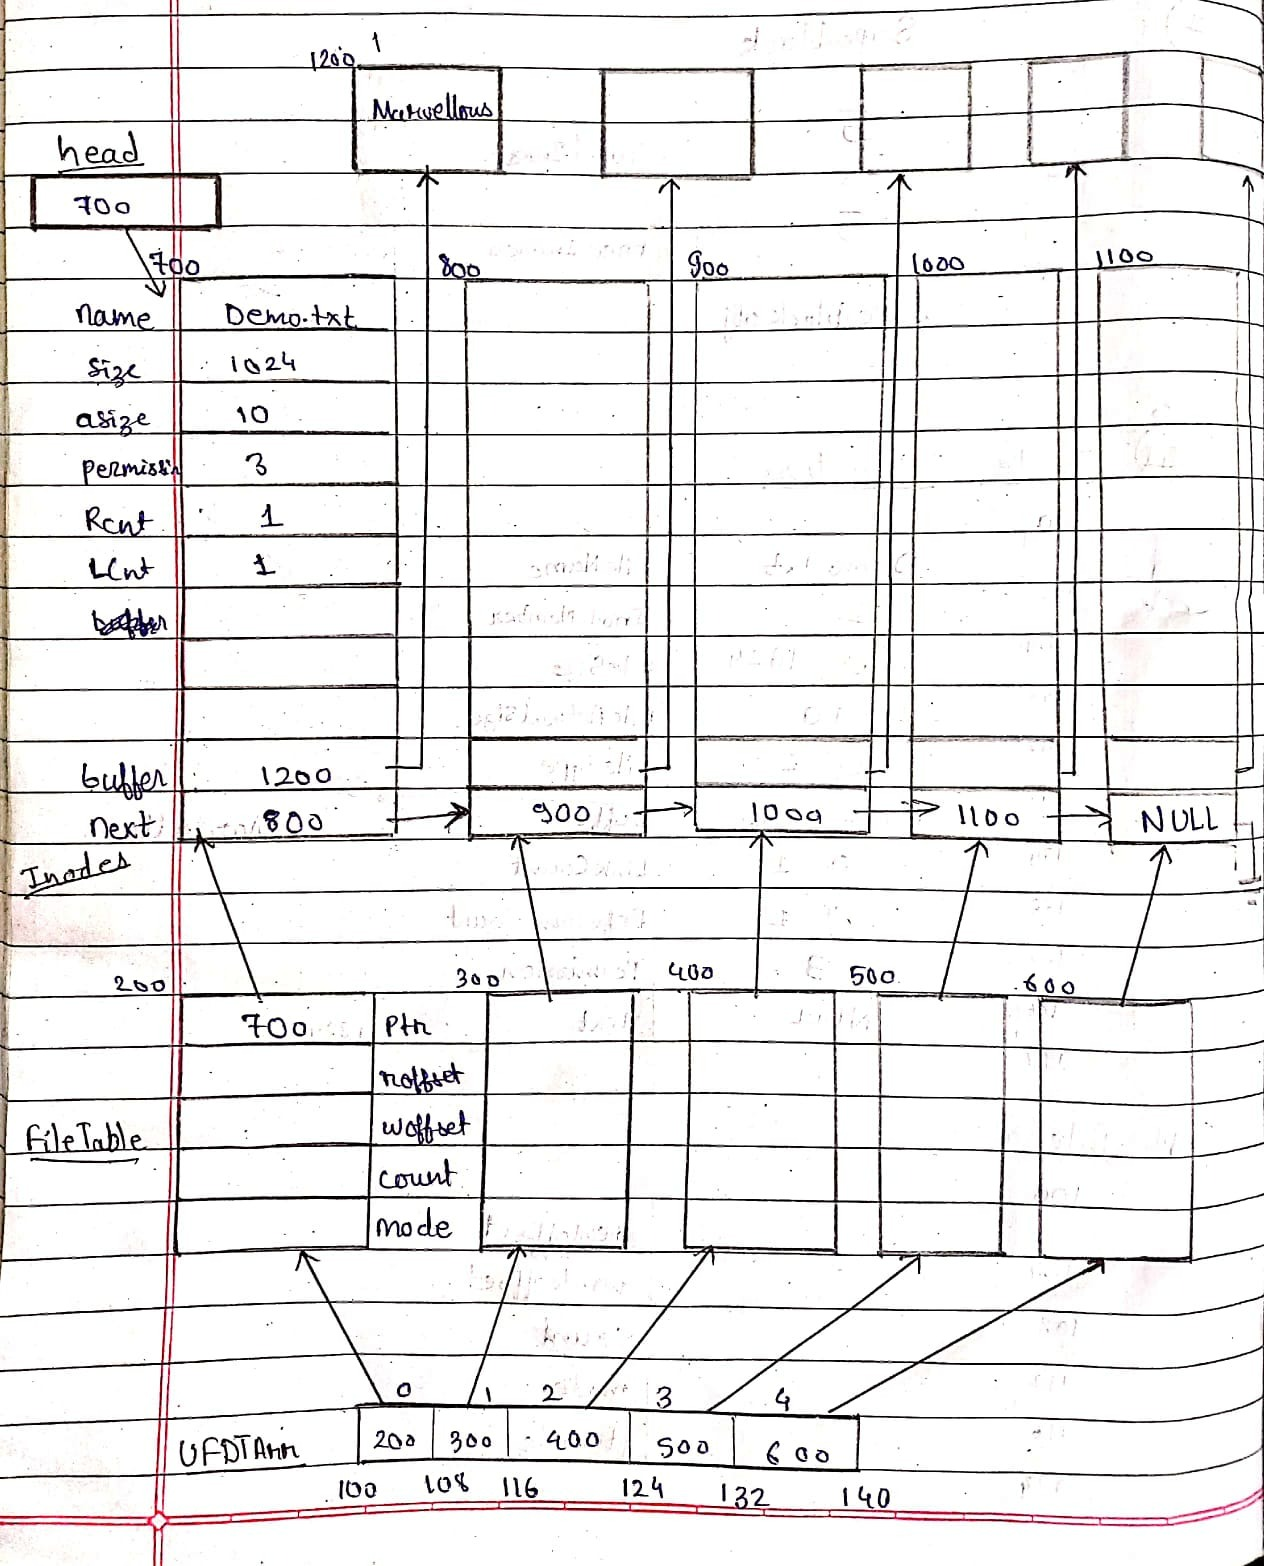 1
1200
Marvellous
head
700
700 800 900 1000 1100
name Demo.txt
size 1024
asize 10
Permissin 3
Rcnt 1
LCnt 1
buffer
buffer 1200
next 800 900 1000 1100 NULL
Inodes
200 300 400 500 600
700 Ptr
roffset
FileTable woffset
count
mode
0 1 2 3 4
UFDTArr 200 300 400 500 600
100 108 116 124 132 140